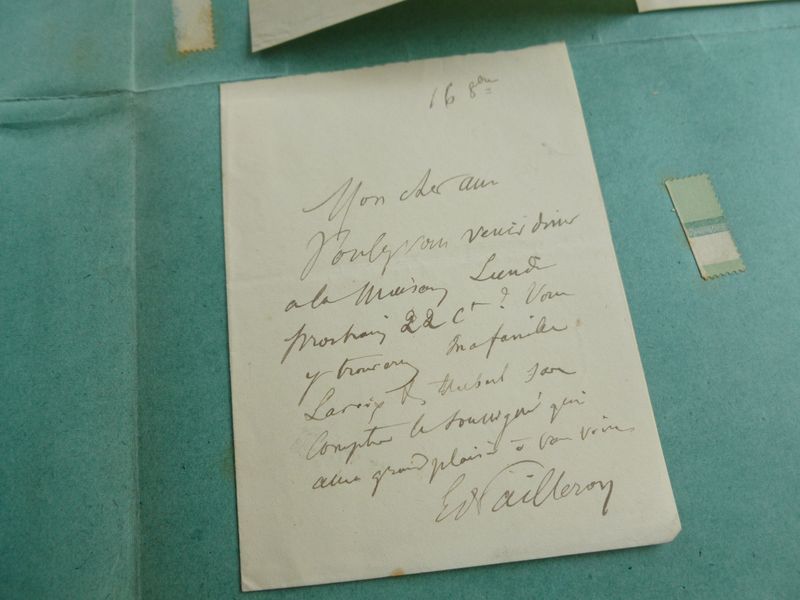 16 8bre
Mon cher ami
Voulez vous venir diner
a la Maison Lundi
prochain 22 Ct ? Vous
y trouverez ma famille
Laroix et Hubert sans
compter le soussigné qui
aura grand plaisir à vous voir.
Ed Pailleron